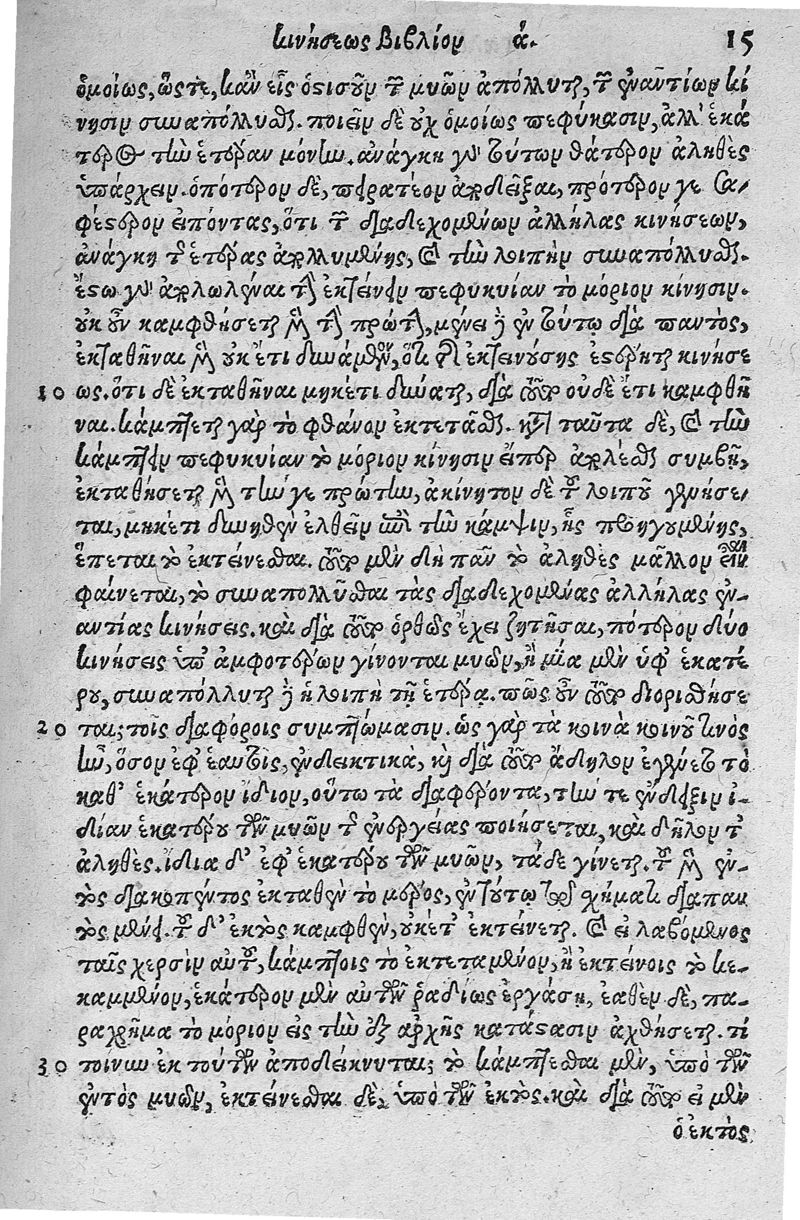 κινήσεως βιβλίον ά. 15
ὁμοίως, ὥστε, κἂν εἷς ὁστισοῦν τῶν μυῶν ἀπόλλυται, τῶν ἐναντίων κί
νησιν συναπόλλυσθαι. ποιεῖν δὲ οὐχ ὁμοίως πεφύκασιν, ἀλλ' ἑκά
τερος τὴν ἑτέραν μόνην. ἀνάγκη γοῦν τούτων θάτερον ἀληθὲς
ὑπάρχειν. ὁπότερον δὲ, πειρατέον ἀποδεῖξαι, πρότερόν γε σα-
φέστερον εἰπόντας, ὅτι τῶν διαδεχομένων ἀλλήλας κινήσεων,
ἀνάγκη τῆς ἑτέρας ἀπολλυμένης, καὶ τὴν λοιπὴν συναπόλλυσθαι.
ἔστω γοῦν ἀπολωλέναι τὴν ἐκτείνειν πεφυκυῖαν τὸ μόριον κίνησιν.
οὐκ οὖν καμφθήσεται μὲν τὴν πρώτην, μένει δὲ ἐν τούτῳ διὰ παντὸς,
ἐκταθῆναι μὲν οὐκ ἔτι δυνάμενον, ὅτι τῆς ἐκτεινούσης ἐστέρηται κινήσε
10 ως. ὅτι δὲ ἐκταθῆναι μηκέτι δύναται, διὰ τοῦτο οὐδὲ ἔτι καμφθῆ
ναι. κάμπτεται γὰρ τὸ φθάνον ἐκτετᾶσθαι. κατὰ ταῦτα δὲ, καὶ τὴν
κάμπτειν πεφυκυῖαν τὸ μόριον κίνησιν εἴπερ ἀπολέσθαι συμβῇ,
ἐκταθήσεται μὲν τήν γε πρώτην, ἀκίνητον δὲ τοῦ λοιποῦ γενήσε
ται, μηκέτι δυνηθὲν ἐλθεῖν ἐπὶ τὴν κάμψιν, ἧς προηγουμένης,
ἕπεται τὸ ἐκτείνεσθαι. τοῦτο μὲν δὴ παντὸς ἀληθὲς μᾶλλον εἶναι
φαίνεται, τὸ συναπολλῦσθαι τὰς διαδεχομένας ἀλλήλας ἐν-
αντίας κινήσεις. καὶ διὰ τοῦτο ὀρθῶς ἔχει ζητῆσαι, πότερον δύο
κινήσεις ὑπ' ἀμφοτέρων γίνονται μυῶν, ἢ μία μὲν ὑφ' ἑκατέ
ρου, συναπόλλυται δὲ ἡ λοιπὴ τῇ ἑτέρᾳ. πῶς οὖν τοῦτο διορισθήσε
20 ται; τοῖς διαφόροις συμπτώμασιν. ὡς γὰρ τὰ κοινὰ κοινοῦ τινὸς
ἦν, ὅσον ἐφ' ἑαυτοῖς, ἐνδεικτικὰ, καὶ διὰ τοῦτο ἄδηλον ἐγένετο τὸ
καθ' ἑκάτερον ἴδιον, οὕτω τὰ διαφέροντα, τήν τε ἔνδειξιν ἰ-
δίαν ἑκατέρου τῶν μυῶν τῆς ἐνεργείας ποιήσεται, καὶ δῆλον τ'
ἀληθές. ἴδια δ' ἐφ' ἑκατέρου τῶν μυῶν, τάδε γίνεται. τοῦ μὲν ἐν-
τὸς διακοπέντος ἐκταθὲν τὸ μέρος, ἐν τούτῳ τῷ σχήματι διαπαν
τὸς μένει. τοῦ δ' ἐκτὸς καμφθὲν, οὐκέτ' ἐκτείνεται. καὶ εἰ λαβόμενος
ταῖς χερσὶν αὐτοῦ, κάμπτοις τὸ ἐκτεταμένον, ἢ ἐκτείνοις τὸ κε-
καμμένον, ἑκάτερον μὲν αὐτῶν ῥᾳδίως ἐργάσῃ, ἐαθὲν δὲ, πα-
ραχρῆμα τὸ μόριον εἰς τὴν ἐξ ἀρχῆς κατάστασιν ἀχθήσεται. τί
30 τοίνυν ἐκ τούτων ἀποδείκνυται; τὸ κάμπτεσθαι μὲν, ὑπὸ τῶν
ἐντὸς μυῶν, ἐκτείνεσθαι δὲ, ὑπὸ τῶν ἐκτὸς. καὶ διὰ τοῦτο εἰ μὲν
ὁ ἐκτὸς